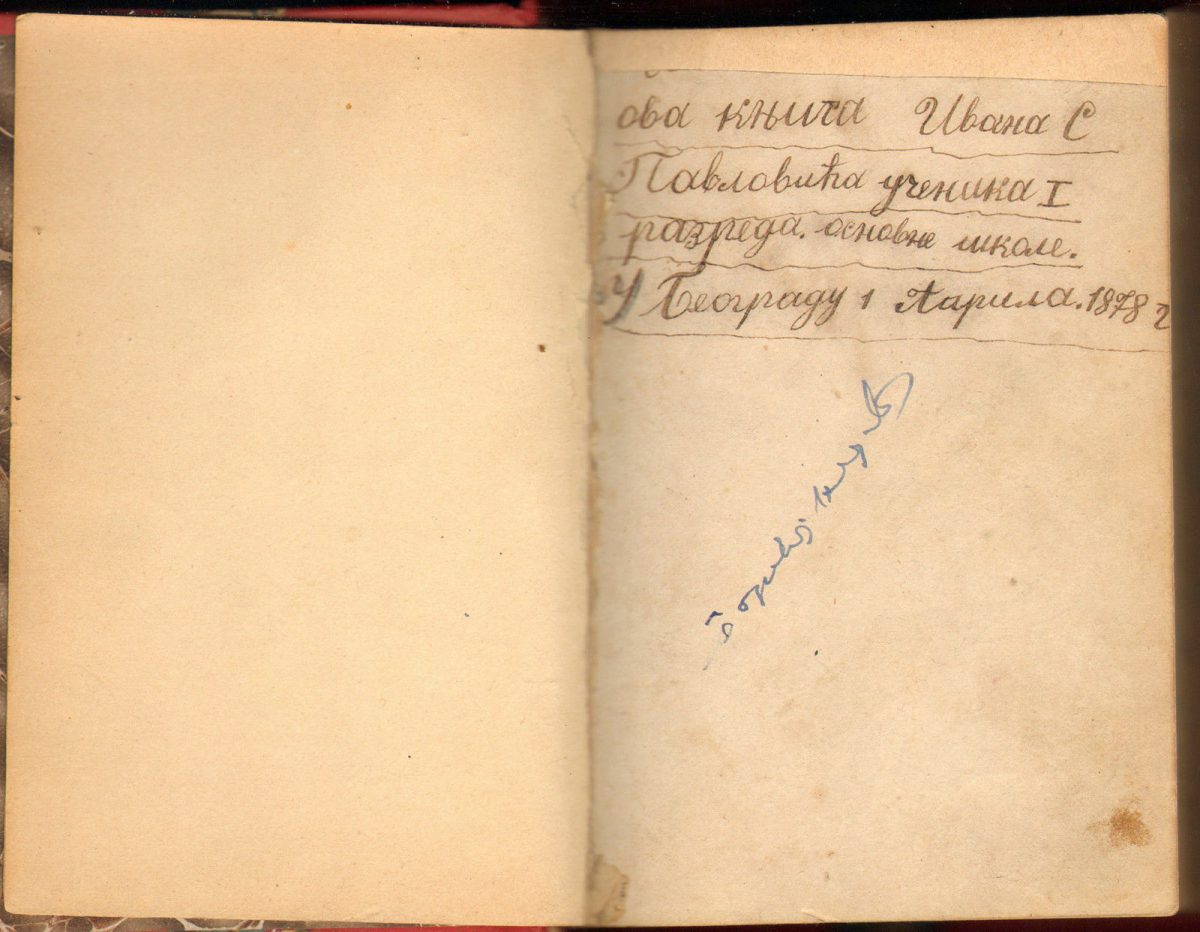 ова књига Ивана С
Павловића ученика I
разреда. основне школе.
У Београду 1 Априла. 1878 г